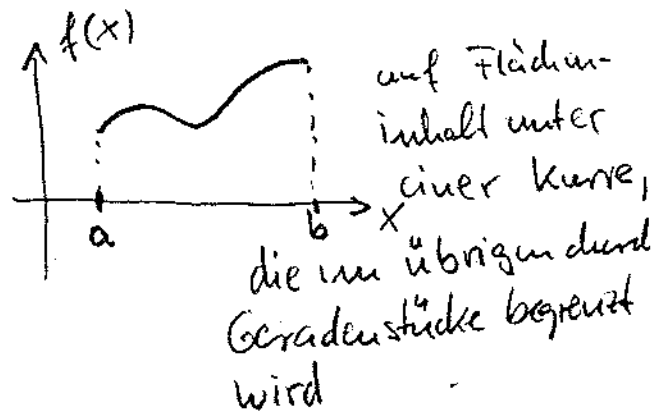 f(x)
auf Flächen-
inhalt unter
einer Kurve,
x
a
b
die im übrigen durch
Geradenstücke begrenzt
wird